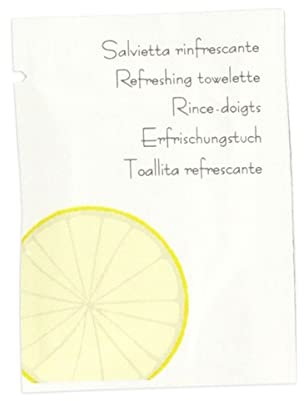 Salvietta rinfrescante
Refreshing towelette
Rince-doigts
Erfrischungstuch
Toallita refrescante